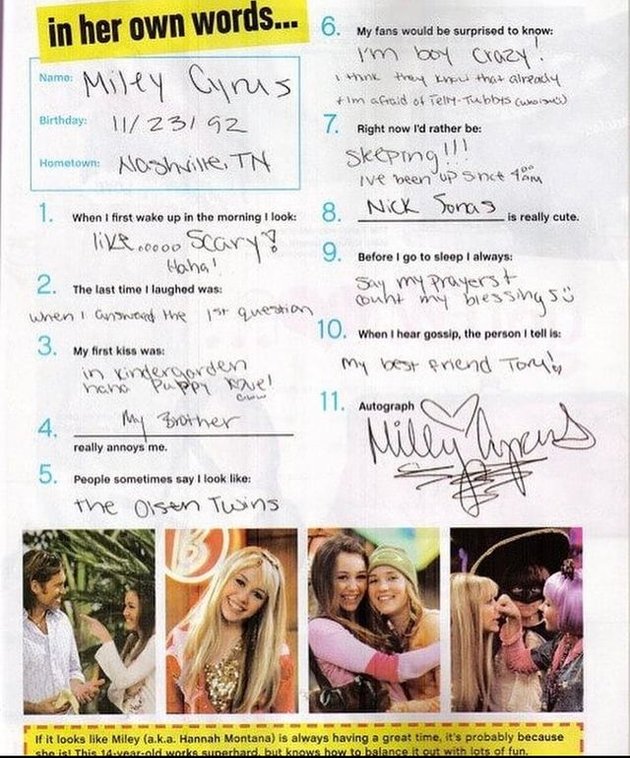 in her own words...
Name: Miley Cyrus
Birthday: 11/23/92
Hometown: Nashville, TN
1. When I first wake up in the morning I look:
like..... Scary!
Haha!
2. The last time I laughed was:
when I answered the 1st question
3. My first kiss was:
in kindergarden
haha Puppy love!
eww
4. My Brother
really annoys me.
5. People sometimes say I look like:
the Olsen Twins
6. My fans would be surprised to know:
I'm boy crazy!
I think they know that already
+ Im afraid of Telly-Tubbys
7. Right now I'd rather be:
Sleeping!!!
Ive been up since 4:00 am
8. Nick Jonas is really cute.
9. Before I go to sleep I always:
Say my prayers +
count my blessings
10. When I hear gossip, the person I tell is:
my best friend Tory!
11. Autograph
Miley Cyrus
B
If it looks like Miley (a.k.a. Hannah Montana) is always having a great time, it's probably because
she is! This 14-year-old works superhard, but knows how to balance it out with lots of fun.